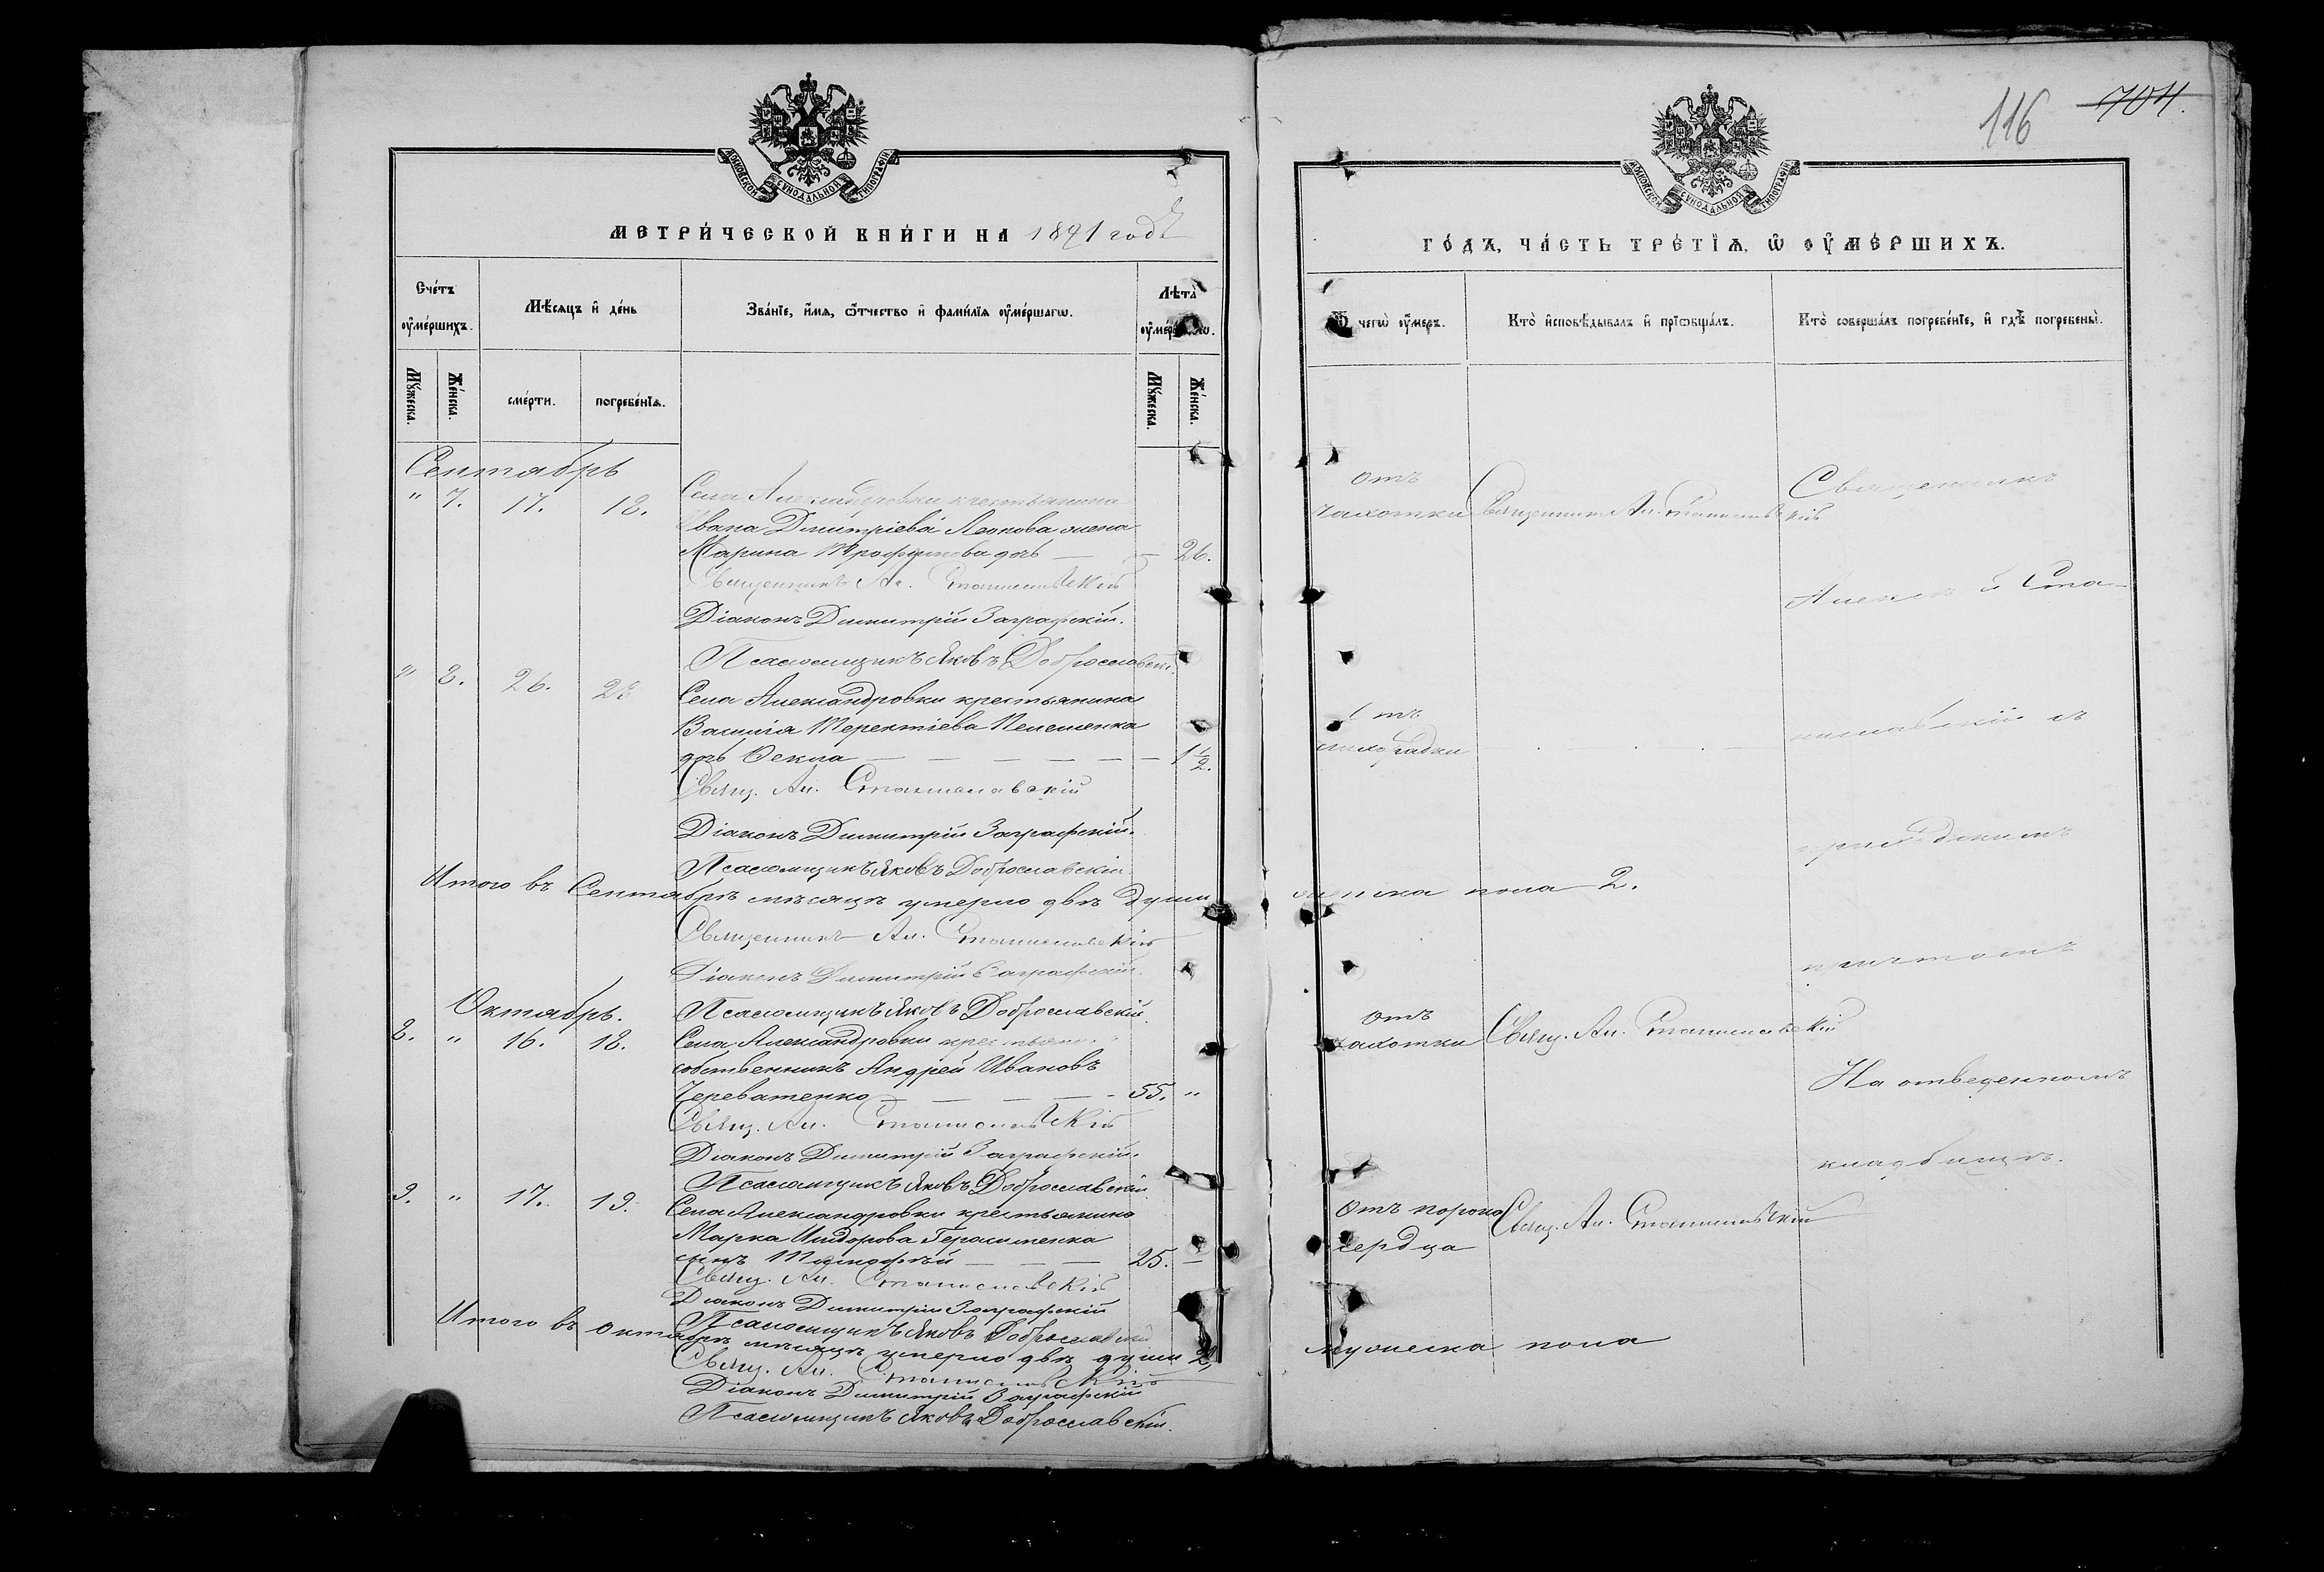 МОСКОВСКОЙ СѴНОДАЛЬНОЙ ТИПОГРАФІИ
МЕТРИ́ЧЕСКОЙ КНИ́ГИ НА 1891 годъ
Сче́тъ ᲂу҆ме́ршихъ.
Мѣ́сяцъ и҆ де́нь
Зва́нїе, и҆́мѧ, ѻ҆́тчество и҆ фами́лїѧ ᲂу҆ме́ршагѡ.
Лѣта̀ ᲂу҆ме́ршагѡ.
Мꙋ́жеска.
Же́нска.
сме́рти.
погребе́нїѧ.
Мꙋ́жеска.
Же́нска.
Сентябрь
" 7. 17. 18. Села Александровки крестьянина
Ивана Дмитріева Леонова жена
Марина Трофимова дочь — — 26.
Священникъ Ал. Станиславскій
Діаконъ Димитрій Заграфскій.
Псаломщикъ Яковъ Доброславскій.
" 8. 26. 28 Села Александровки крестьянина
Василія Терентіева Пелешенка
дочь Ѳекла — — — — — — 1 1/2.
Свящ. Ал. Станиславскій
Діаконъ Димитрій Заграфскій.
Псаломщикъ Яковъ Доброславскій
Итого въ Сентябрѣ мѣсяцѣ умерло двѣ души
Священникъ Ал. Станиславскій
Діаконъ Димитрій Заграфскій.
Октябрь.
Псаломщикъ Яковъ Доброславскій.
8. " 16. 18. Села Александровки крестьян.
собственникъ Андрей Ивановъ
Череватенко — — — — 55. "
Свящ. Ал. Станиславскій
Діаконъ Димитрій Заграфскій.
Псаломщикъ Яковъ Доброславскій
9. " 17. 19. Села Александровки крестьянина
Марка Исидорова Герасименка
сынъ Тимофѣй — — — 25. —
Свящ. Ал. Станиславскій
Діаконъ Димитрій Заграфскій
Псаломщикъ Яковъ Доброславскій
Итого въ Октябрѣ мѣсяцѣ умерло двѣ души 2,
Свящ. Ал. Станиславскій
Діаконъ Димитрій Заграфскій
Псаломщикъ Яковъ Доброславскій.
116 704.
МОСКОВСКОЙ СѴНОДАЛЬНОЙ ТИПОГРАФІИ
ГО́ДЪ, ЧА́СТЬ ТРЕ́ТЇѦ, Ѡ҆ ОУ҆МЕ́РШИХЪ.
Ѿ чегѡ̀ ᲂу҆́меръ.
Кто̀ и҆сповѣ́дывалъ и҆ прїѡбща́лъ.
Кто̀ соверша́лъ погребе́нїе, и҆ гдѣ̀ погребены̀.
отъ
чахотки Священникъ Ал. Станиславскій
Священникъ
Алексѣй Ста-
Отъ
лихорадки
ниславскій съ
приходскимъ
женска пола 2.
причтомъ
отъ
чахотки Свящ. Ал. Станиславскій
На отведенномъ
кладбищѣ.
Отъ порока Свящ. Ал. Станиславскій
сердца
мужеска пола